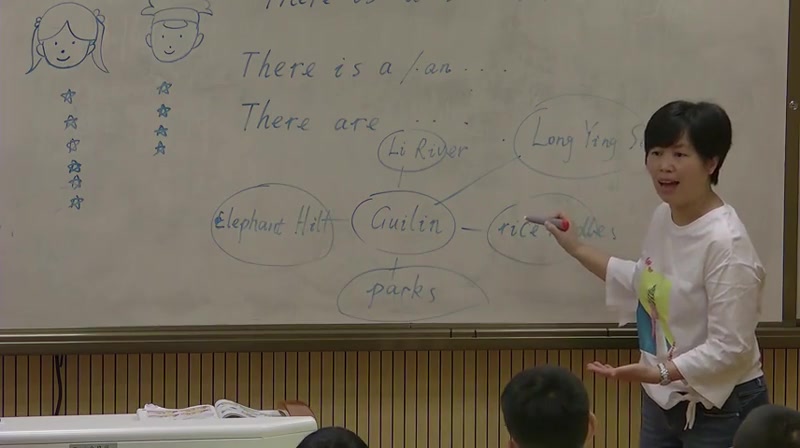 There is a
There is a / an ...
There are ...
Li River
Long Ying
Elephant Hill
Guilin
rice
parks